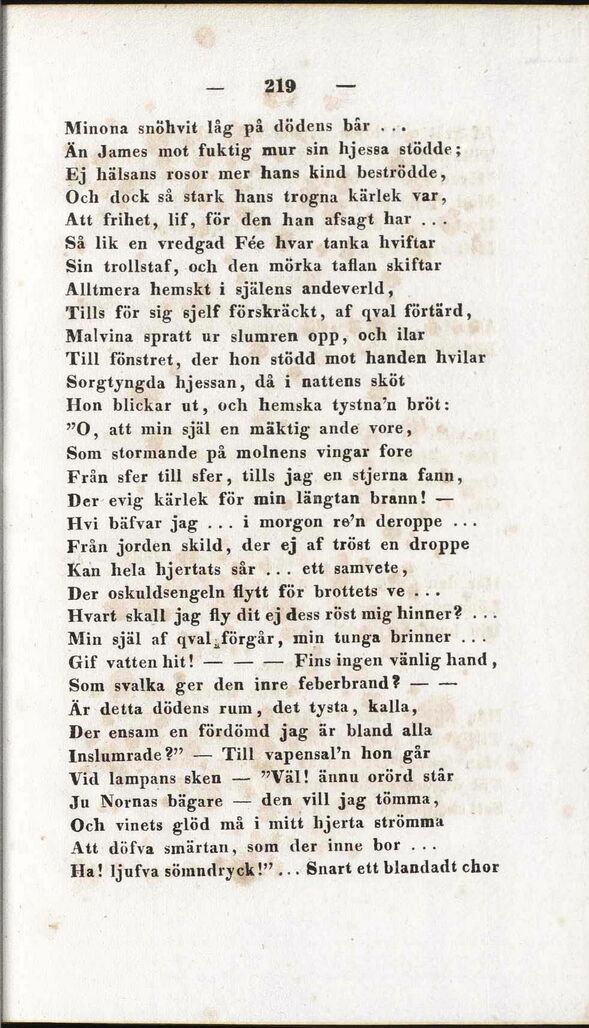 — 219 —
Minona snöhvit låg på dödens bår . . .
Än James mot fuktig mur sin hjessa stödde;
Ej hälsans rosor mer hans kind beströdde,
Och dock så stark hans trogna kärlek var,
Att frihet, lif, för den han afsagt har . . .
Så lik en vredgad Fée hvar tanka hviftar
Sin trollstaf, och den mörka taflan skiftar
Alltmera hemskt i själens andeverld,
Tills för sig sjelf förskräckt, af qval förtärd,
Malvina spratt ur slumren opp, och ilar
Till fönstret, der hon stödd mot handen hvilar
Sorgtyngda hjessan, då i nattens sköt
Hon blickar ut, och hemska tystna'n bröt:
”O, att min själ en mäktig ande vore,
Som stormande på molnens vingar fore
Från sfer till sfer, tills jag en stjerna fann,
Der evig kärlek för min längtan brann! —
Hvi bäfvar jag . . . i morgon re'n deroppe . . .
Från jorden skild, der ej af tröst en droppe
Kan hela hjertats sår . . . ett samvete,
Der oskuldsengeln flytt för brottets ve . . .
Hvart skall jag fly dit ej dess röst mig hinner? . . .
Min själ af qval förgår, min tunga brinner . . .
Gif vatten hit! — — — Fins ingen vänlig hand,
Som svalka ger den inre feberbrand? — —
Är detta dödens rum, det tysta, kalla,
Der ensam en fördömd jag är bland alla
Inslumrade?” — Till vapensal'n hon går
Vid lampans sken — ”Väl! ännu orörd står
Ju Nornas bägare — den vill jag tömma,
Och vinets glöd må i mitt hjerta strömma
Att döfva smärtan, som der inne bor . . .
Ha! ljufva sömndryck!” . . . Snart ett blandadt chor